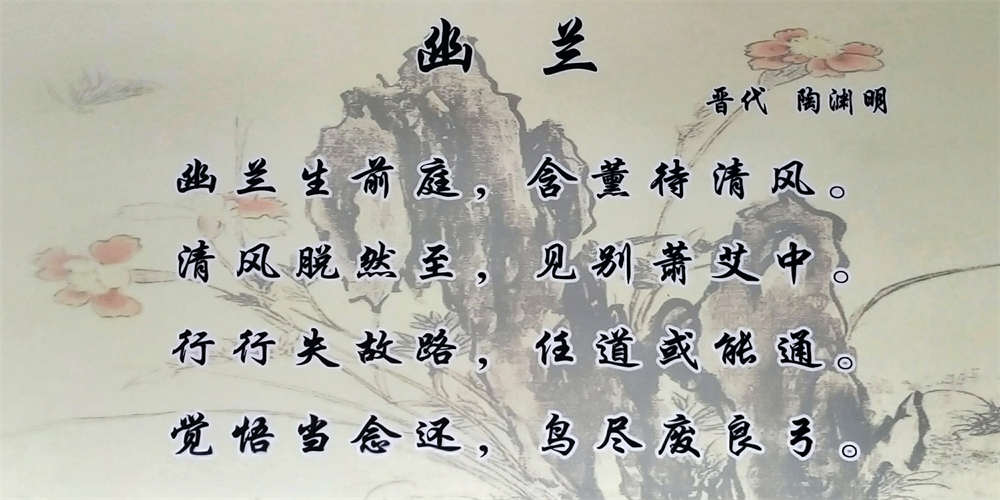 幽兰
晋代 陶渊明
幽兰生前庭，含薰待清风。
清风脱然至，见别萧艾中。
行行失故路，任道或能通。
觉悟当念还，鸟尽废良弓。